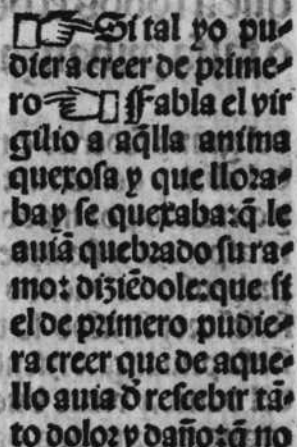 ☞Si tal yo pu⸗
diera creer de prime⸗
ro☜ Fabla el vir
gilio a aq̃lla anima
quexosa y que llora⸗
ba y se quexaba:q̃ le
auiã quebrado su ra⸗
mo: diziẽdole:que si
el de primero pudie⸗
ra creer que de aque⸗
llo auia d̃ rescebir tã⸗
to dolor y daño:q̃ no